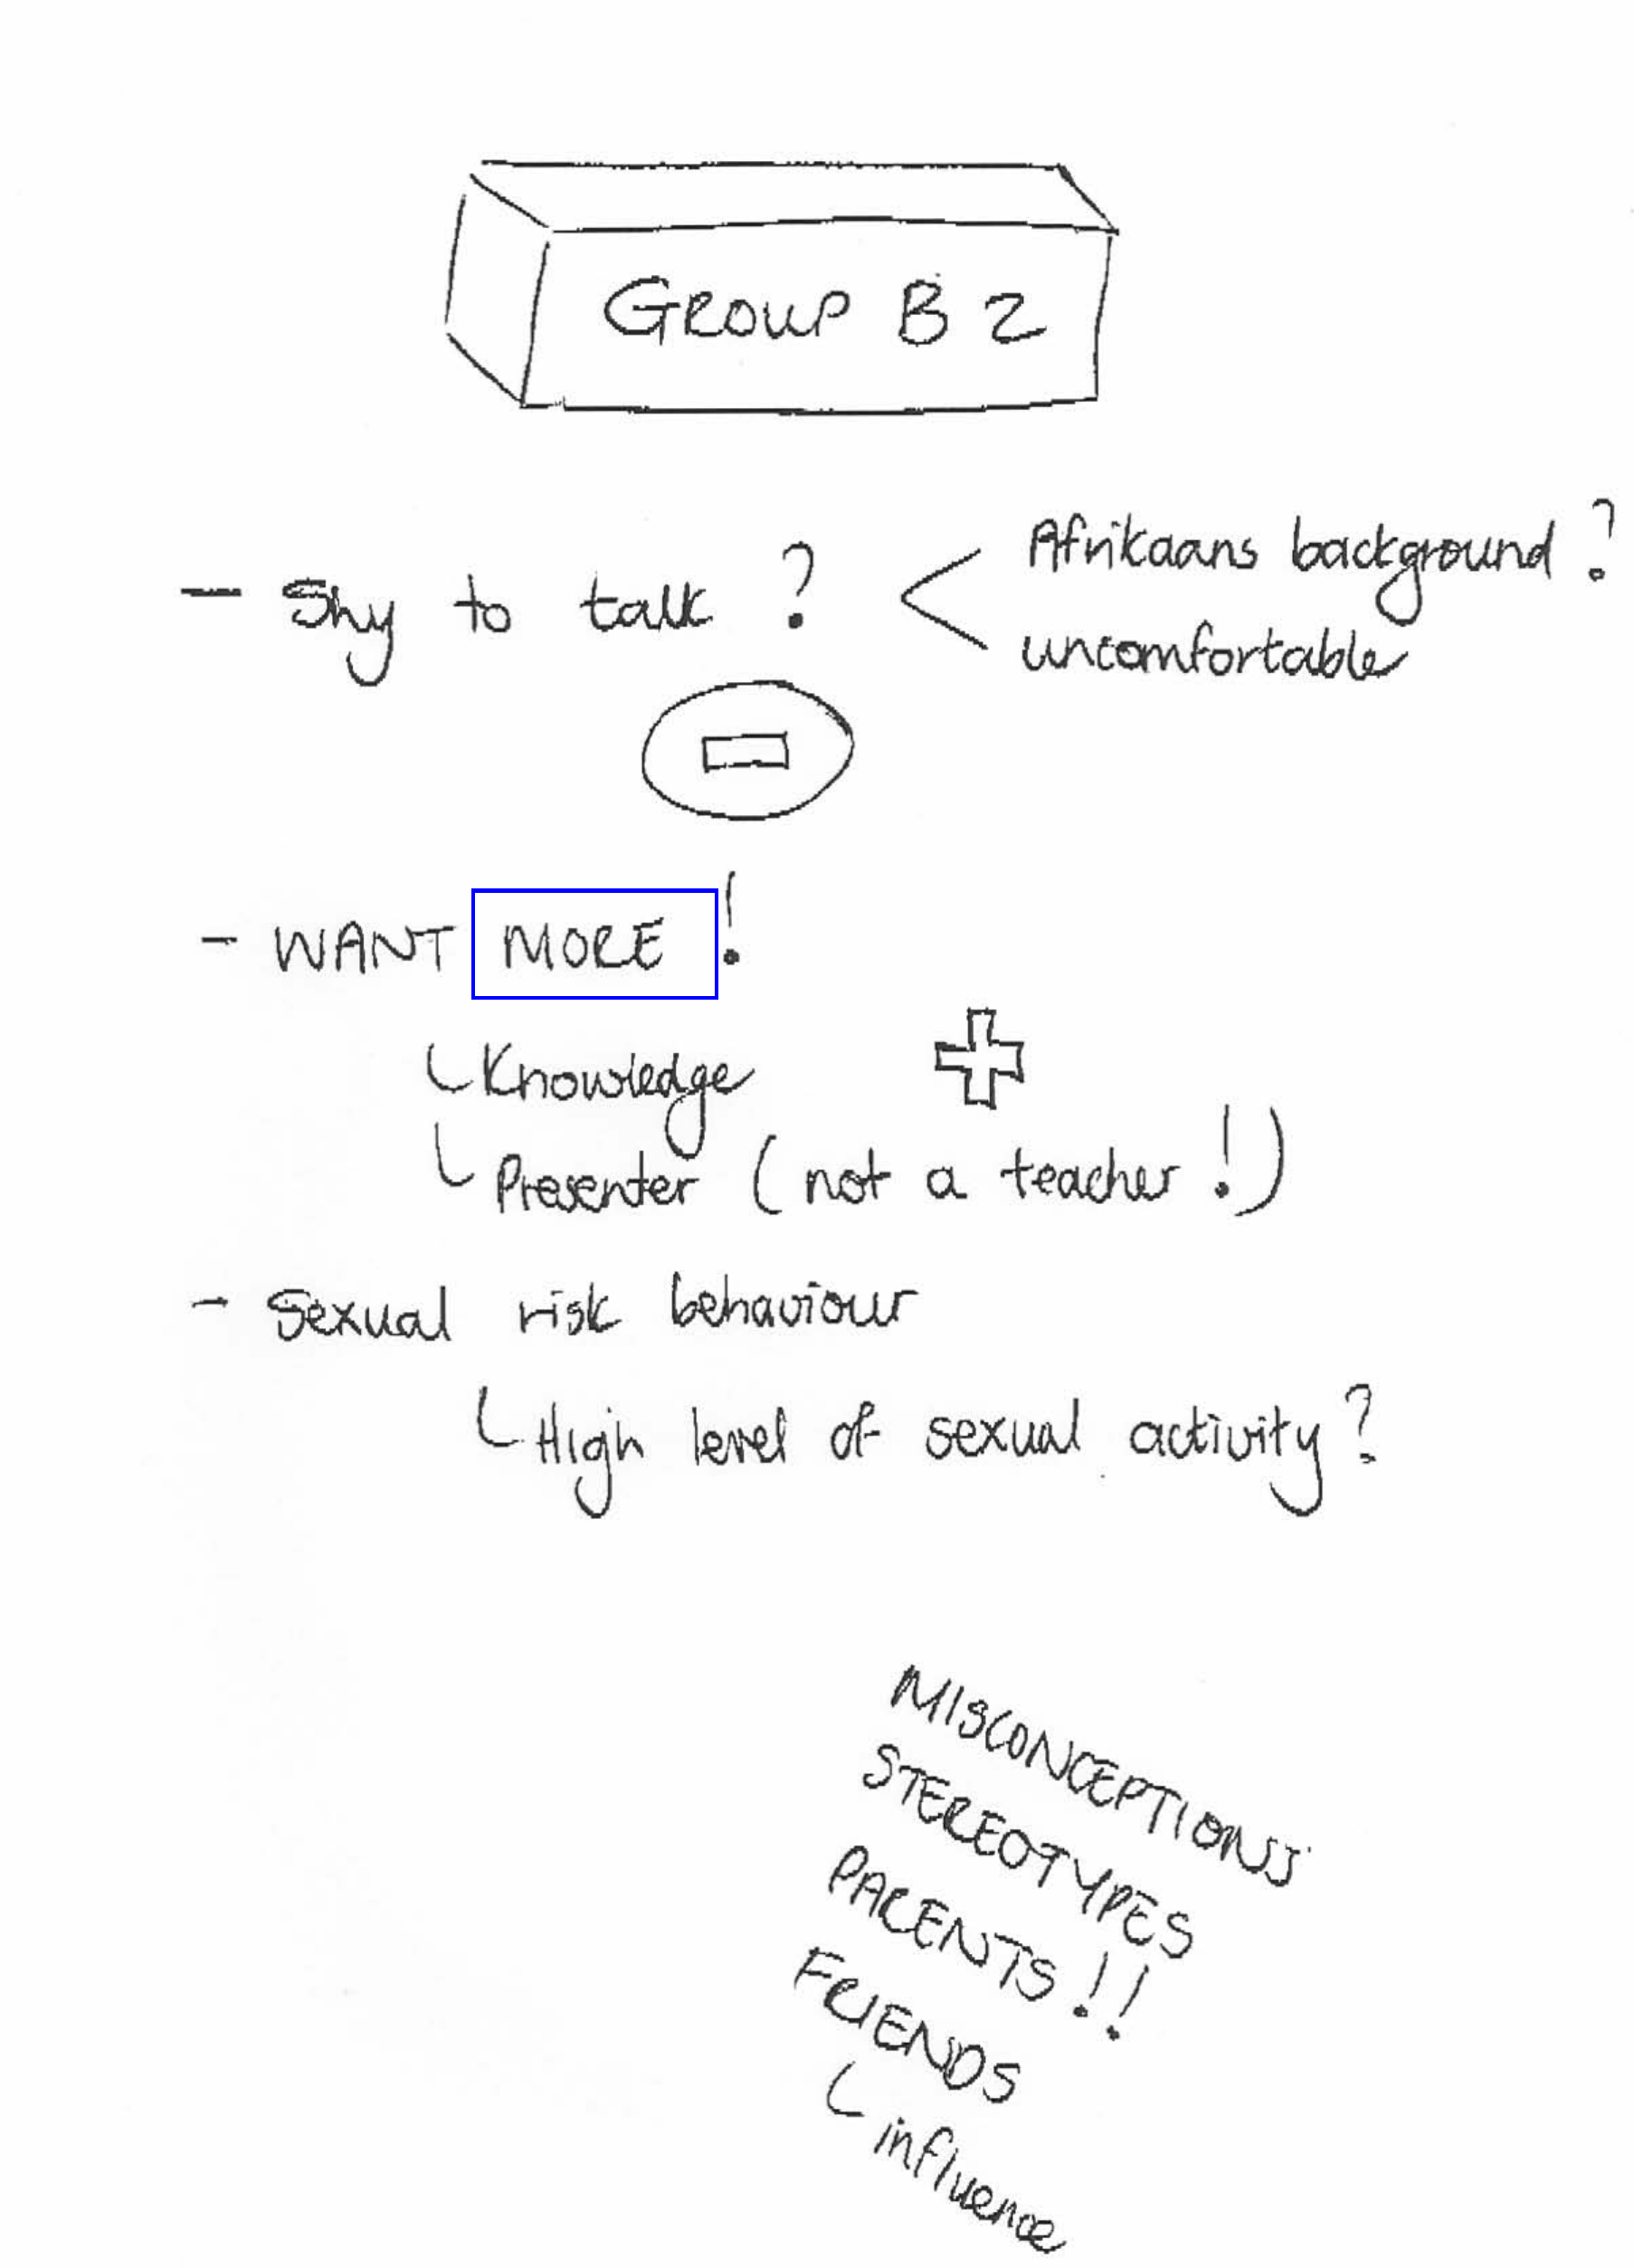 GROUP B 2
- Shy to talk ? < Afrikaans background ?
uncomfortable
- WANT MORE !
Knowledge
Presenter (not a teacher !)
- Sexual risk behaviour
High level of sexual activity ?
MISCONCEPTIONS
STEREOTYPES
PARENTS !!
FRIENDS
influence